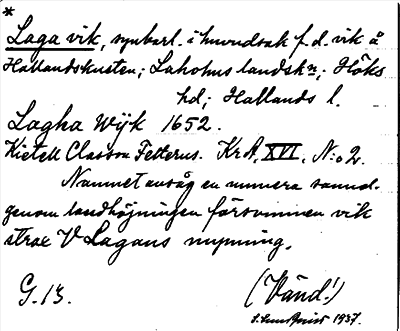 *
Laga vik, synbarl. i huvudsak f.d. vik å
Hallandskusten; Laholms landskn; Höks
hd; Hallands l.
Lagha Wijk 1652.
Kietell Classon Felterus. KrA, XVI, N:o 2.
Namnet avsåg en numera sannol.
genom landhöjningen försvunnen vik
strax V Lagans mynning.
G. 13. (Vänd!)
S. 1937.